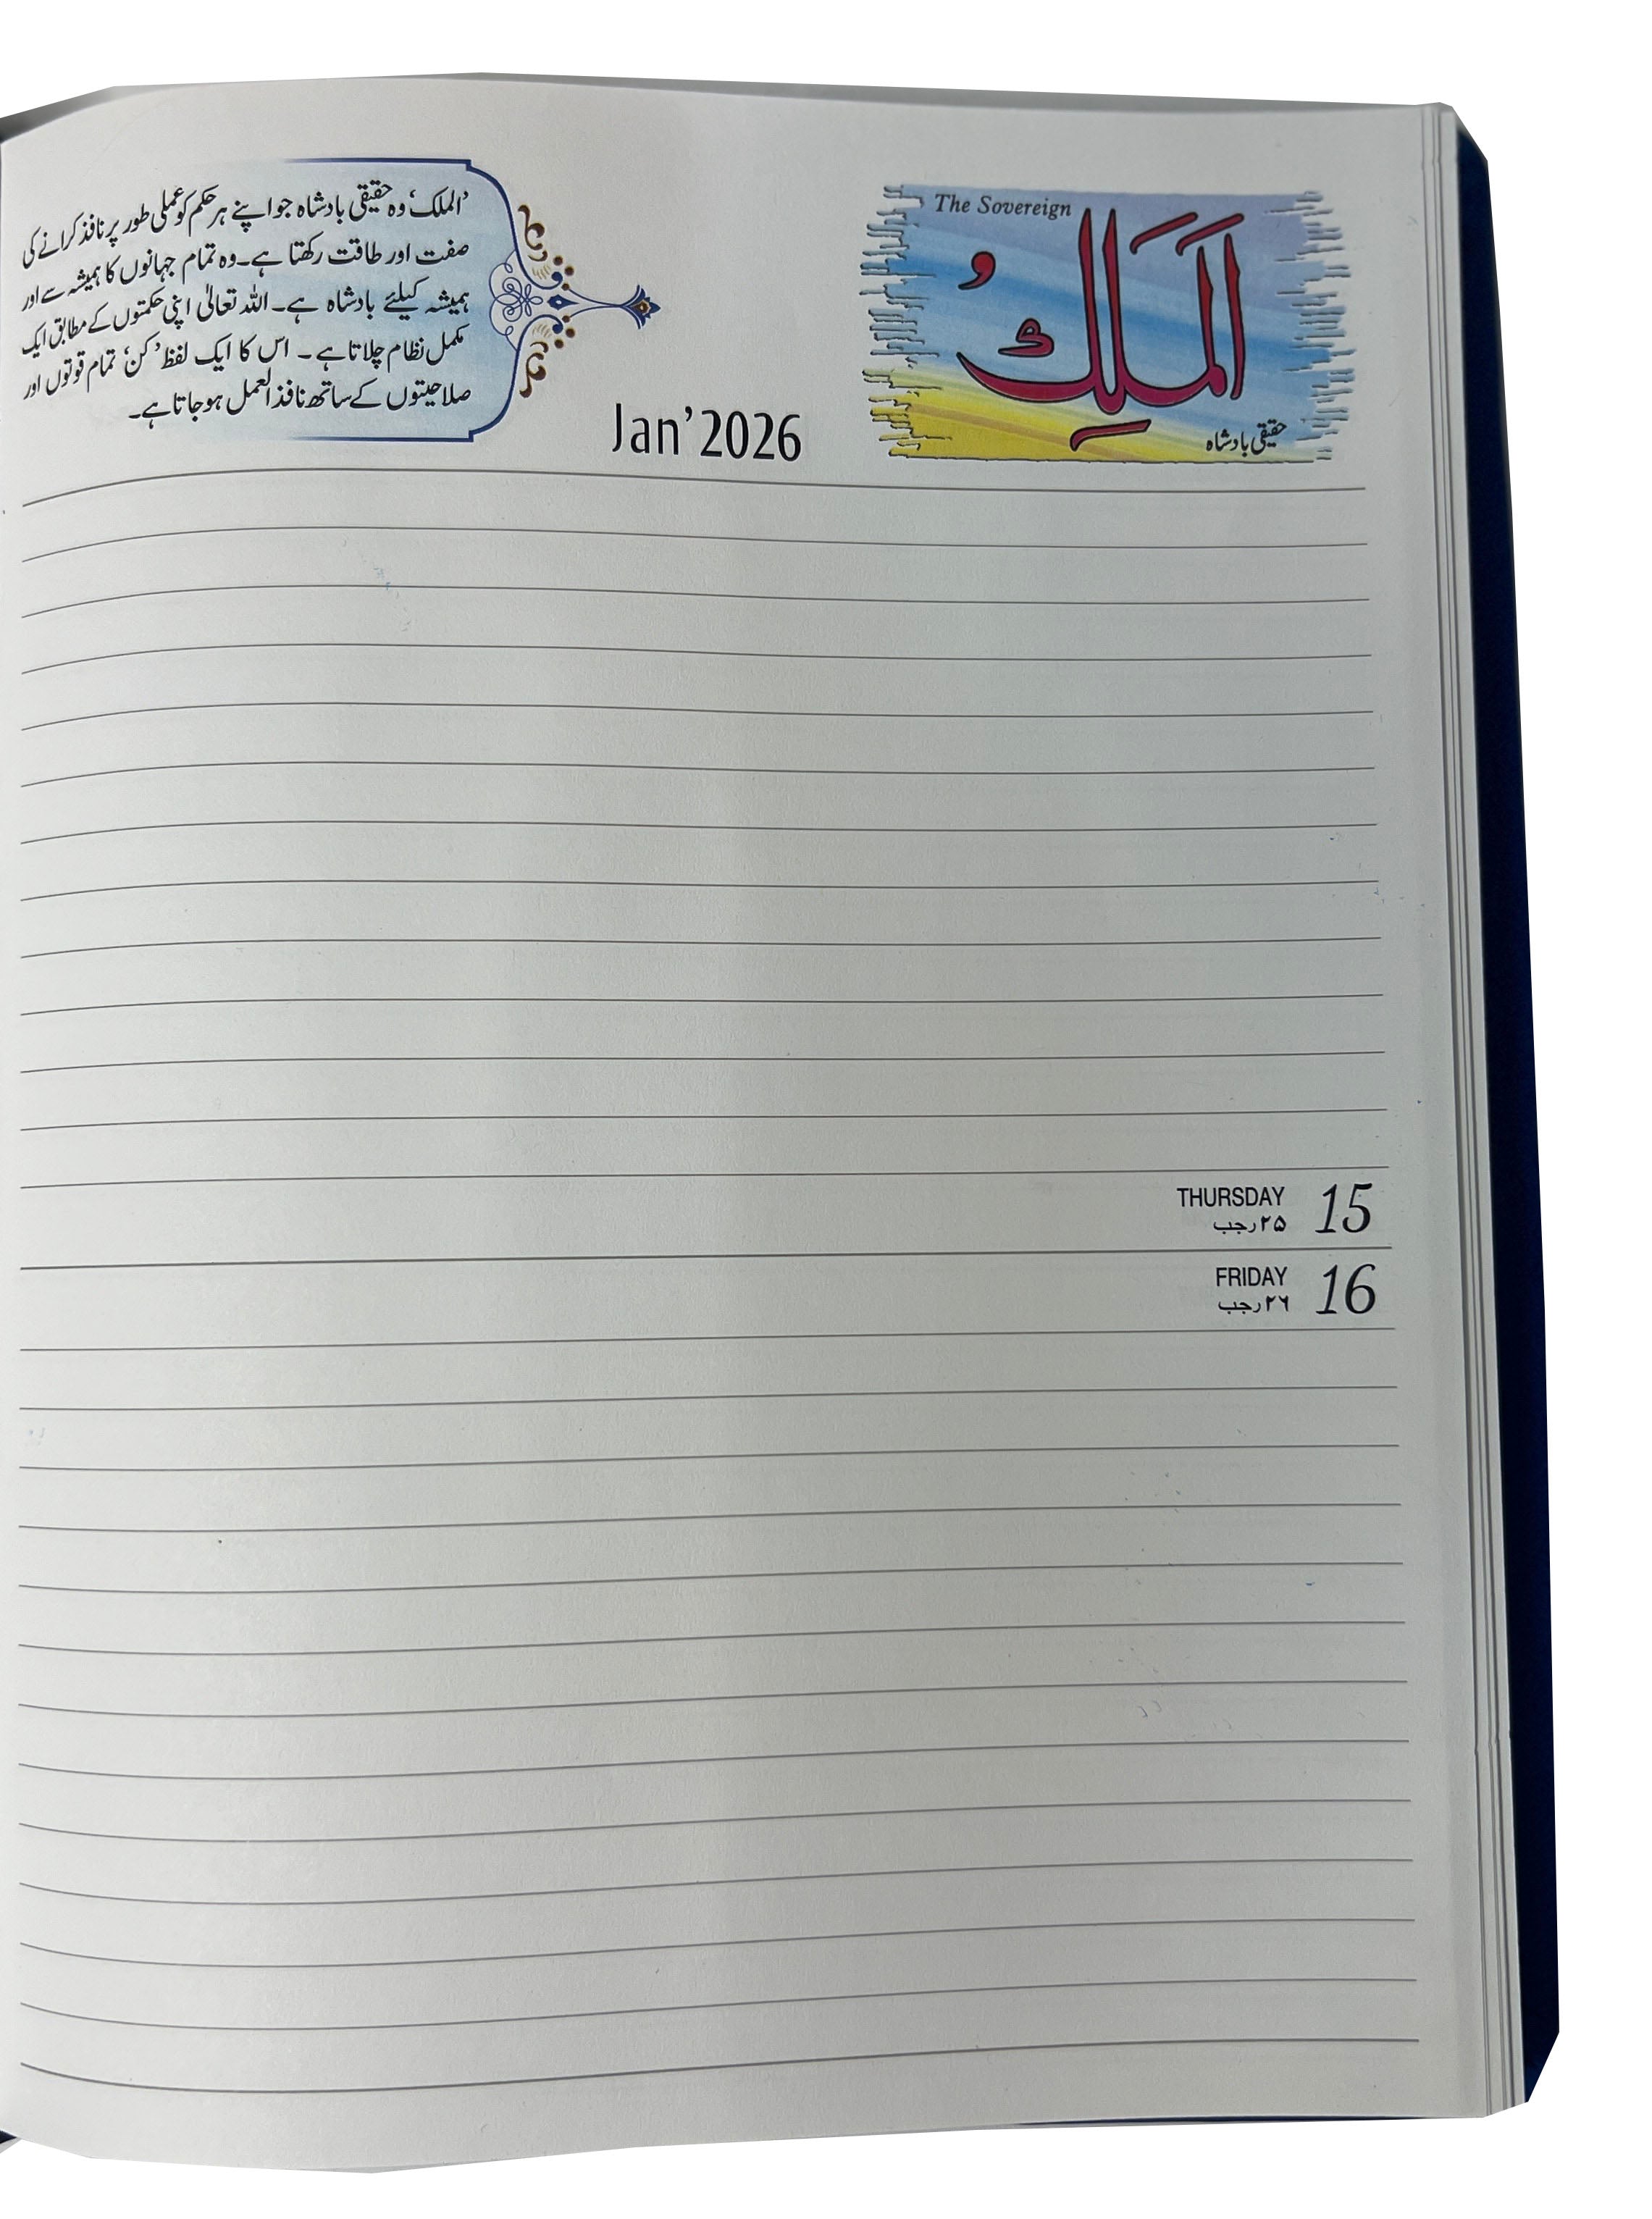 'الملک' وہ حقیقی بادشاہ جو اپنے ہر حکم کو عملی طور پر نافذ کرانے کی
صفت اور طاقت رکھتا ہے۔ وہ تمام جہانوں کا ہمیشہ سے اور
ہمیشہ کیلئے بادشاہ ہے۔ اللہ تعالیٰ اپنی حکمتوں کے مطابق ایک
مکمل نظام چلاتا ہے۔ اس کا ایک لفظ 'کن' تمام قوتوں اور
صلاحیتوں کے ساتھ نافذ العمل ہو جاتا ہے۔
Jan'2026
The Sovereign
اَلْمَلِكُ
حقیقی بادشاہ
THURSDAY 15
۲۵ رجب
FRIDAY 16
۲۶ رجب